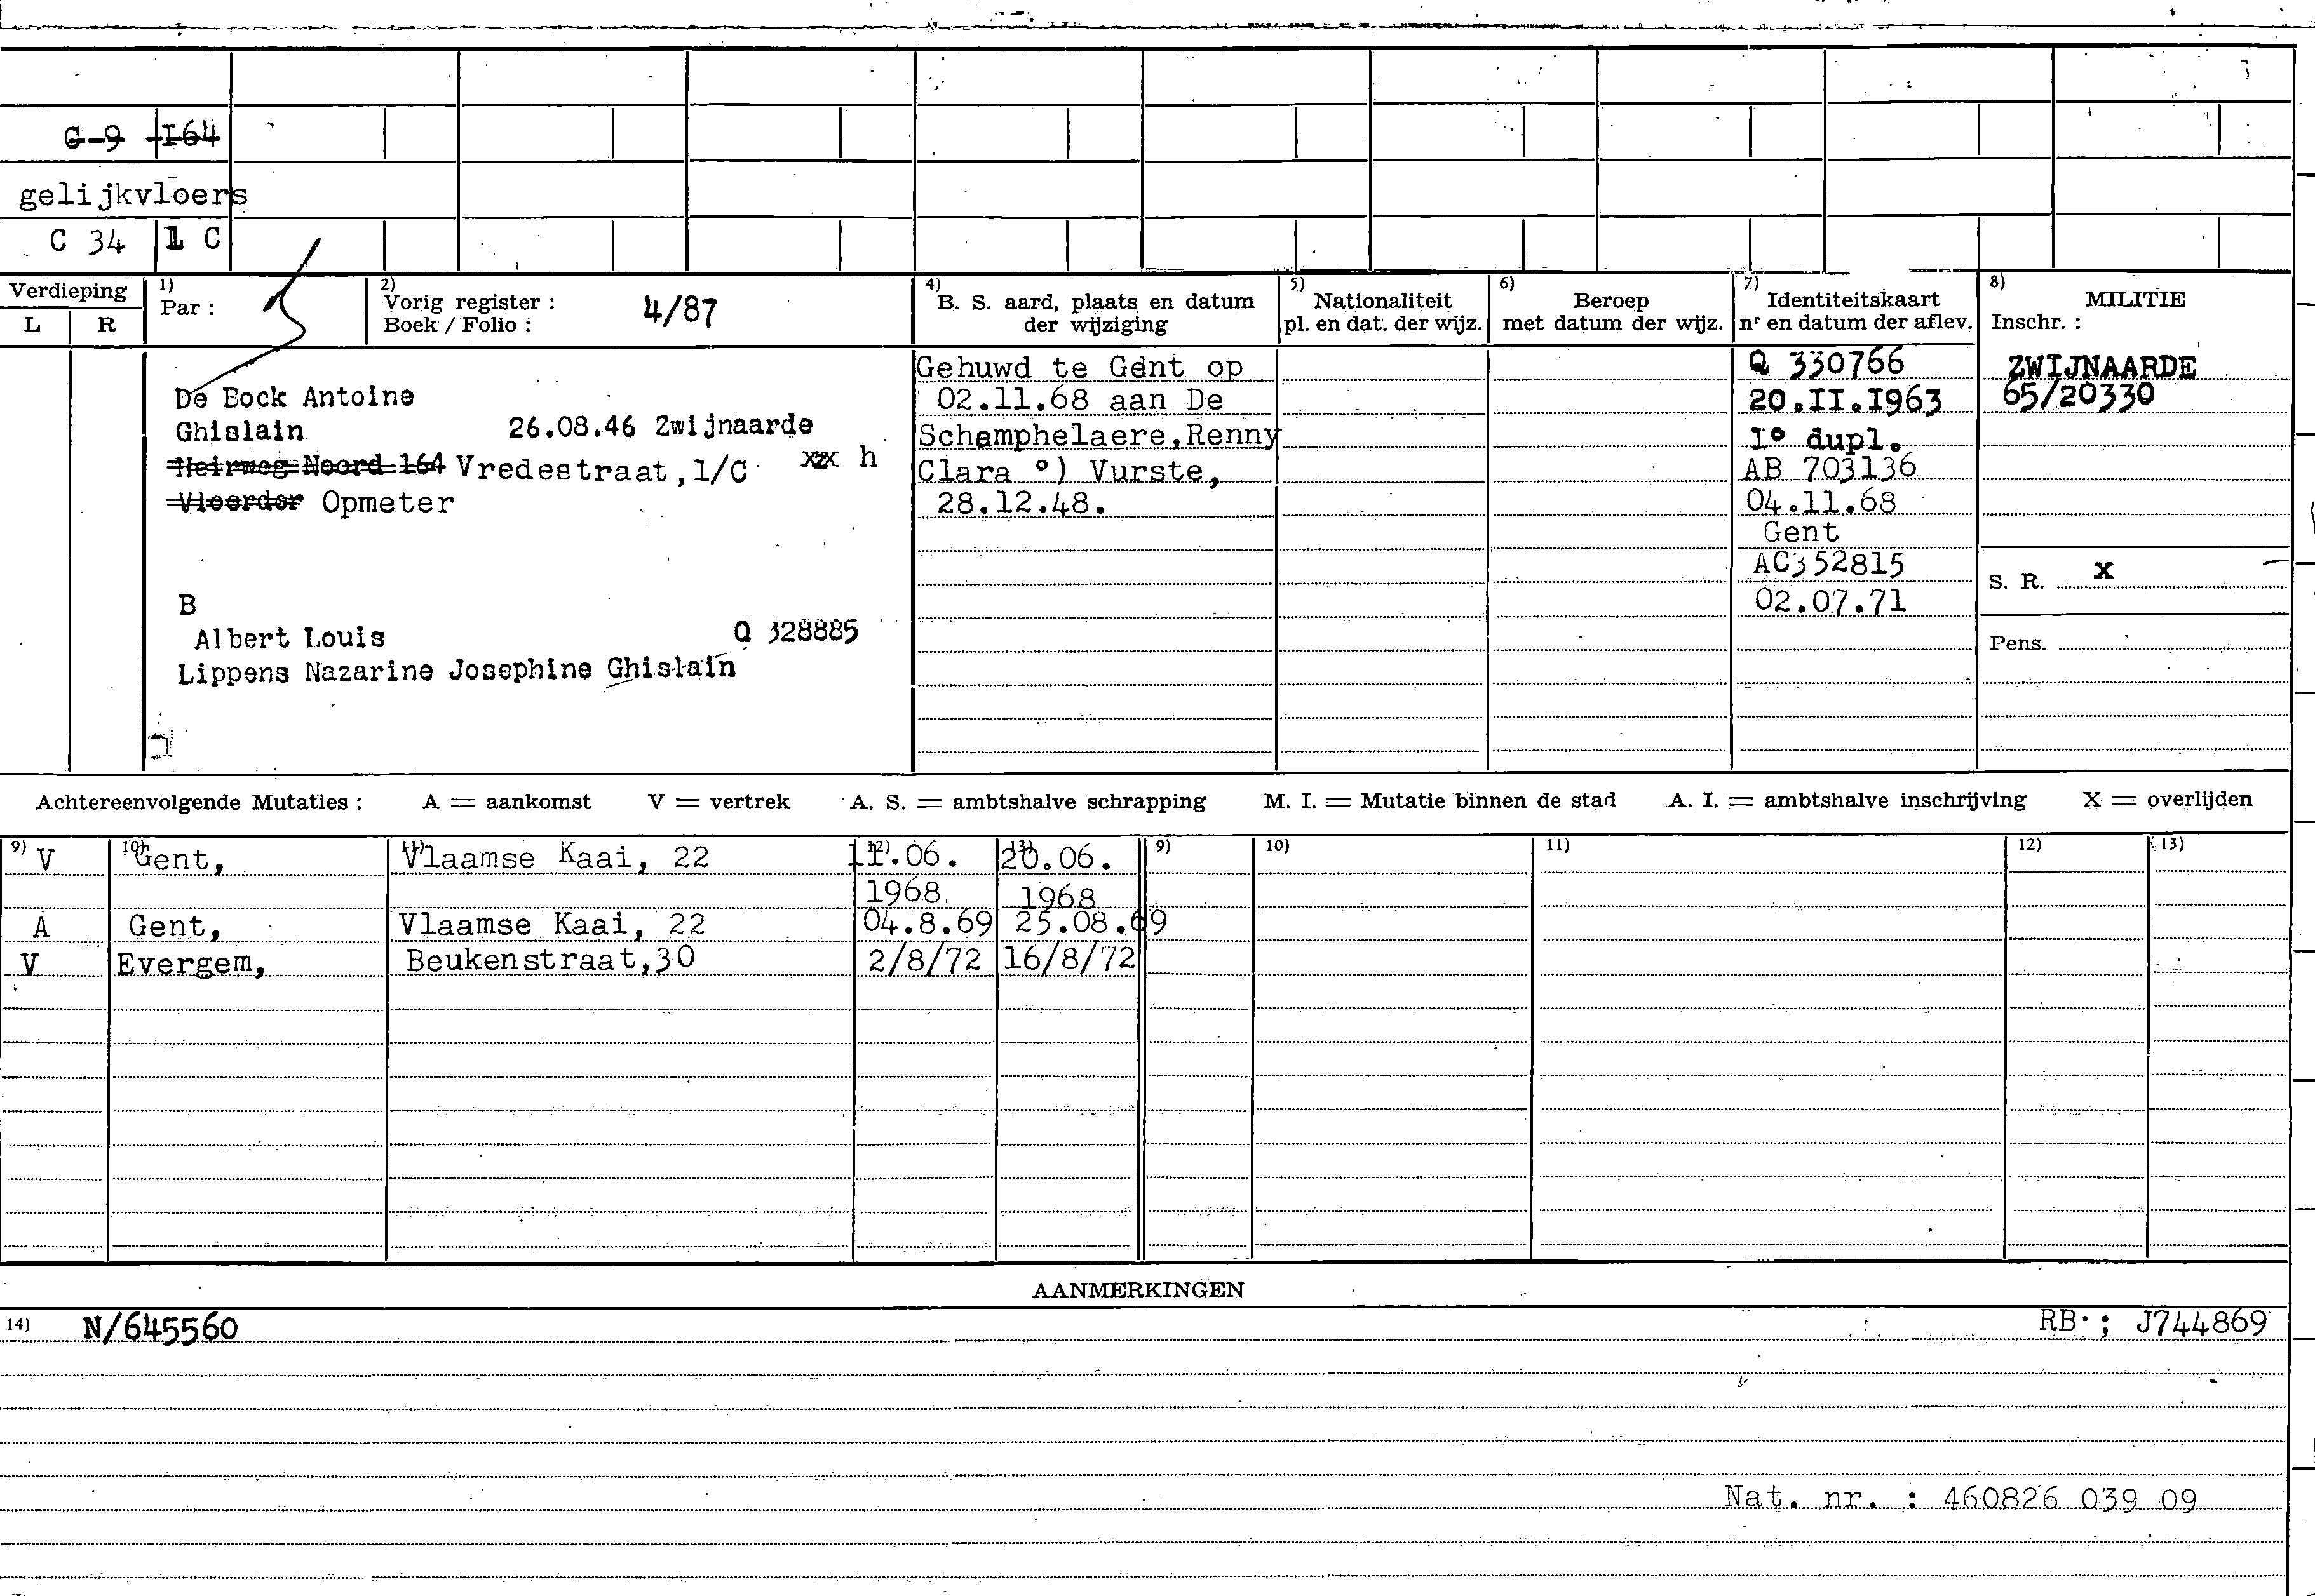 G-9 I64
gelijkvloers
C 34 1 C
Verdieping
L R
1) Par :
2) Vorig register :
Boek / Folio : 4/87
4) B. S. aard, plaats en datum
der wijziging
5) Nationaliteit
pl. en dat. der wijz.
6) Beroep
met datum der wijz.
7) Identiteitskaart
nr en datum der aflev.
8) MILITIE
Inschr. :
De Bock Antoine
Ghislain 26.08.46 Zwijnaarde
Heirweg Noord 164 Vredestraat,1/C xxx h
Vloerder Opmeter
B
Albert Louis Q 328885
Lippens Nazarine Josephine Ghislain
Gehuwd te Gent op
02.11.68 aan De
Schamphelaere,Renny
Clara °) Vurste,
28.12.48.
Q 330766
20.II.I963
I° dupl.
AB 703136
04.11.68
Gent
AC352815
02.07.71
ZWIJNAARDE
65/20330
S. R. X
Pens.
Achtereenvolgende Mutaties : A = aankomst V = vertrek A. S. = ambtshalve schrapping M. I. = Mutatie binnen de stad A. I. = ambtshalve inschrijving X = overlijden
9) 10) 11) 12) 13) 9) 10) 11) 12) 13)
V Gent, Vlaamse Kaai, 22 11.06. 20.06.
1968 1968
A Gent, Vlaamse Kaai, 22 04.8.69 25.08.69
V Evergem, Beukenstraat,30 2/8/72 16/8/72
AANMERKINGEN
14) N/645560 RB.; J744869
Nat. nr. : 460826 039 09